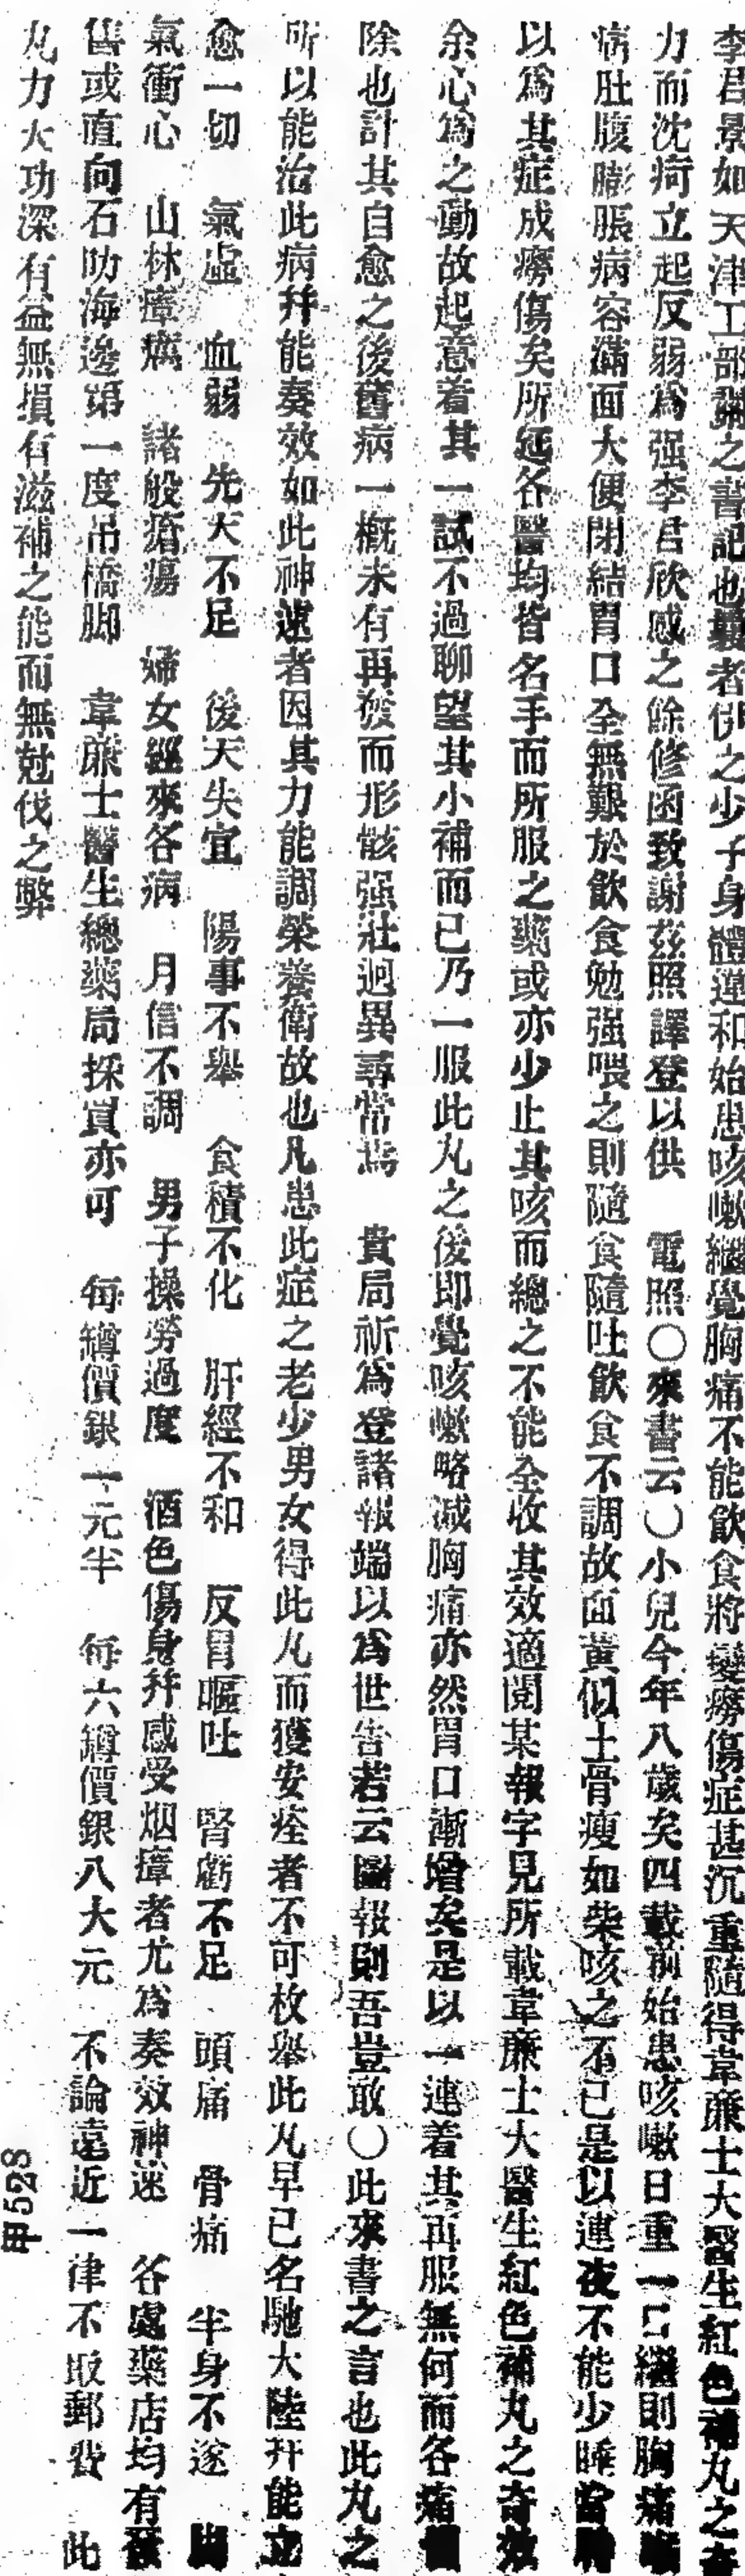 李君景如天津工部局之書記也曩者伊之少子身體違和始患咳嗽繼覺胸痛不能飲食將變癆傷症甚沉重隨得韋廉士大醫生紅色補丸之奇
力而沈疴立起反弱爲强李君欣感之餘修函致謝茲照譯登以供　電照〇來書云〇小兒今年八歲矣四載前始患咳嗽日重一日繼則胸痛
病肚腹膨脹病容滿面大便閉結胃口全無艱於飲食勉强喂之則隨食隨吐飲食不調故面黃似土骨瘦如柴咳之不已是以連夜不能少睡當時
以爲其症成癆傷矣所延各醫均皆名手而所服之藥或亦少止其咳而總之不能全收其效適閱某報字見所載韋廉士大醫生紅色補丸之奇效
余心爲之動故起意着其一試不過聊望其小補而已乃一服此丸之後即覺咳嗽略減胸痛亦然胃口漸增矣是以一連着其再服無何而各痛
除也計其自愈之後舊病一概未有再發而形骸强壯迥異尋常焉　貴局祈爲登諸報端以爲世告若云圖報則吾豈敢〇此來書之言也此丸之
所以能治此病幷能奏效如此神速者因其力能調榮養衛故也凡患此症之老少男女得此丸而獲安痊者不可枚舉此丸早已名馳大陸幷能立
愈一切　氣虛　血弱　先天不足　後天失宜　陽事不舉　食積不化　肝經不和　反胃嘔吐　腎虧不足　頭痛　骨痛　半身不遂　脚
氣衝心　山林瘴癘　諸般瘡瘍　婦女經來各病　月信不調　男子操勞過度　酒色傷身幷感受烟瘴者尤爲奏效神速　各處藥店均有發
售或直向石叻海邊第一度吊橋脚　韋廉士醫生總藥局採買亦可　每罇價銀一元半　每六罇價銀八大元　不論遠近一律不取郵費　此
丸力大功深有益無損有滋補之能而無尅伐之弊
甲528